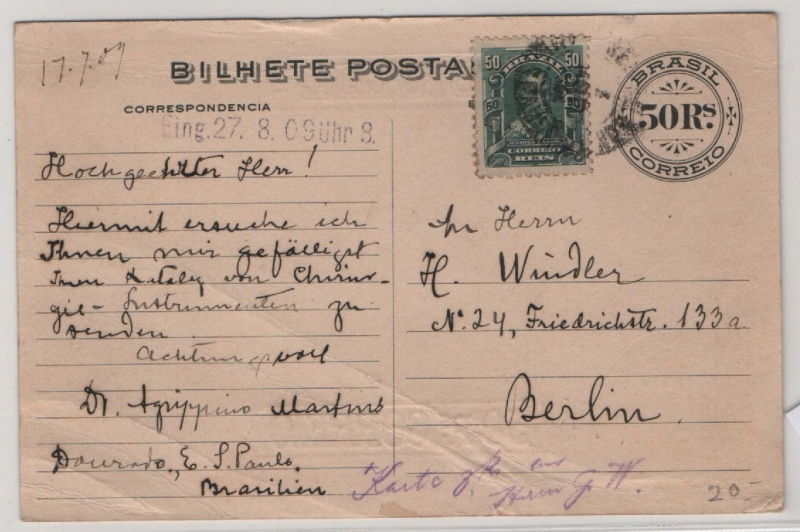 17.7.09
BILHETE POSTA
CORRESPONDENCIA
Eing. 27. 8. 09 Uhr 8.
Hochgeehrter Herr!
Hiermit ersuche ich
Ihnen mir gefälligst
Ihren Katalog von Chirur-
gie-Instrumenten zu
senden.
Achtungsvoll
Dr. Agrippino Martins
Dourado, E. S. Paulo.
Brasilien
50 BRAZIL 50
50
CORREIO
REIS
BRASIL
50 RS.
CORREIO
Herrn
H. Windler
N. 24, Friedrichstr. 133a
Berlin.
Karte
Herrn J. W.
20-